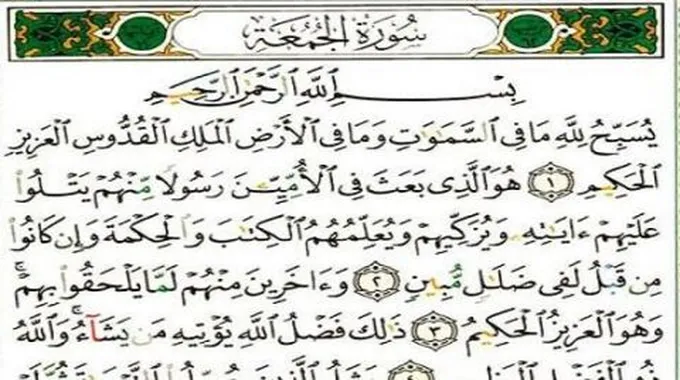 سُورَةُ الجُمُعَةِ
بِسْمِ اللَّهِ الرَّحْمَٰنِ الرَّحِيمِ
يُسَبِّحُ لِلَّهِ مَا فِي السَّمَٰوَٰتِ وَمَا فِي الْأَرْضِ الْمَلِكِ الْقُدُّوسِ الْعَزِيزِ
الْحَكِيمِ ١ هُوَ الَّذِي بَعَثَ فِي الْأُمِّيِّـۧنَ رَسُولًا مِّنْهُمْ يَتْلُوا
عَلَيْهِمْ ءَايَٰتِهِۦ وَيُزَكِّيهِمْ وَيُعَلِّمُهُمُ الْكِتَٰبَ وَالْحِكْمَةَ وَإِن كَانُوا
مِن قَبْلُ لَفِي ضَلَٰلٍ مُّبِينٍ ٢ وَءَاخَرِينَ مِنْهُمْ لَمَّا يَلْحَقُوا بِهِمْ ۚ
وَهُوَ الْعَزِيزُ الْحَكِيمُ ٣ ذَٰلِكَ فَضْلُ اللَّهِ يُؤْتِيهِ مَن يَشَآءُ ۚ وَاللَّهُ